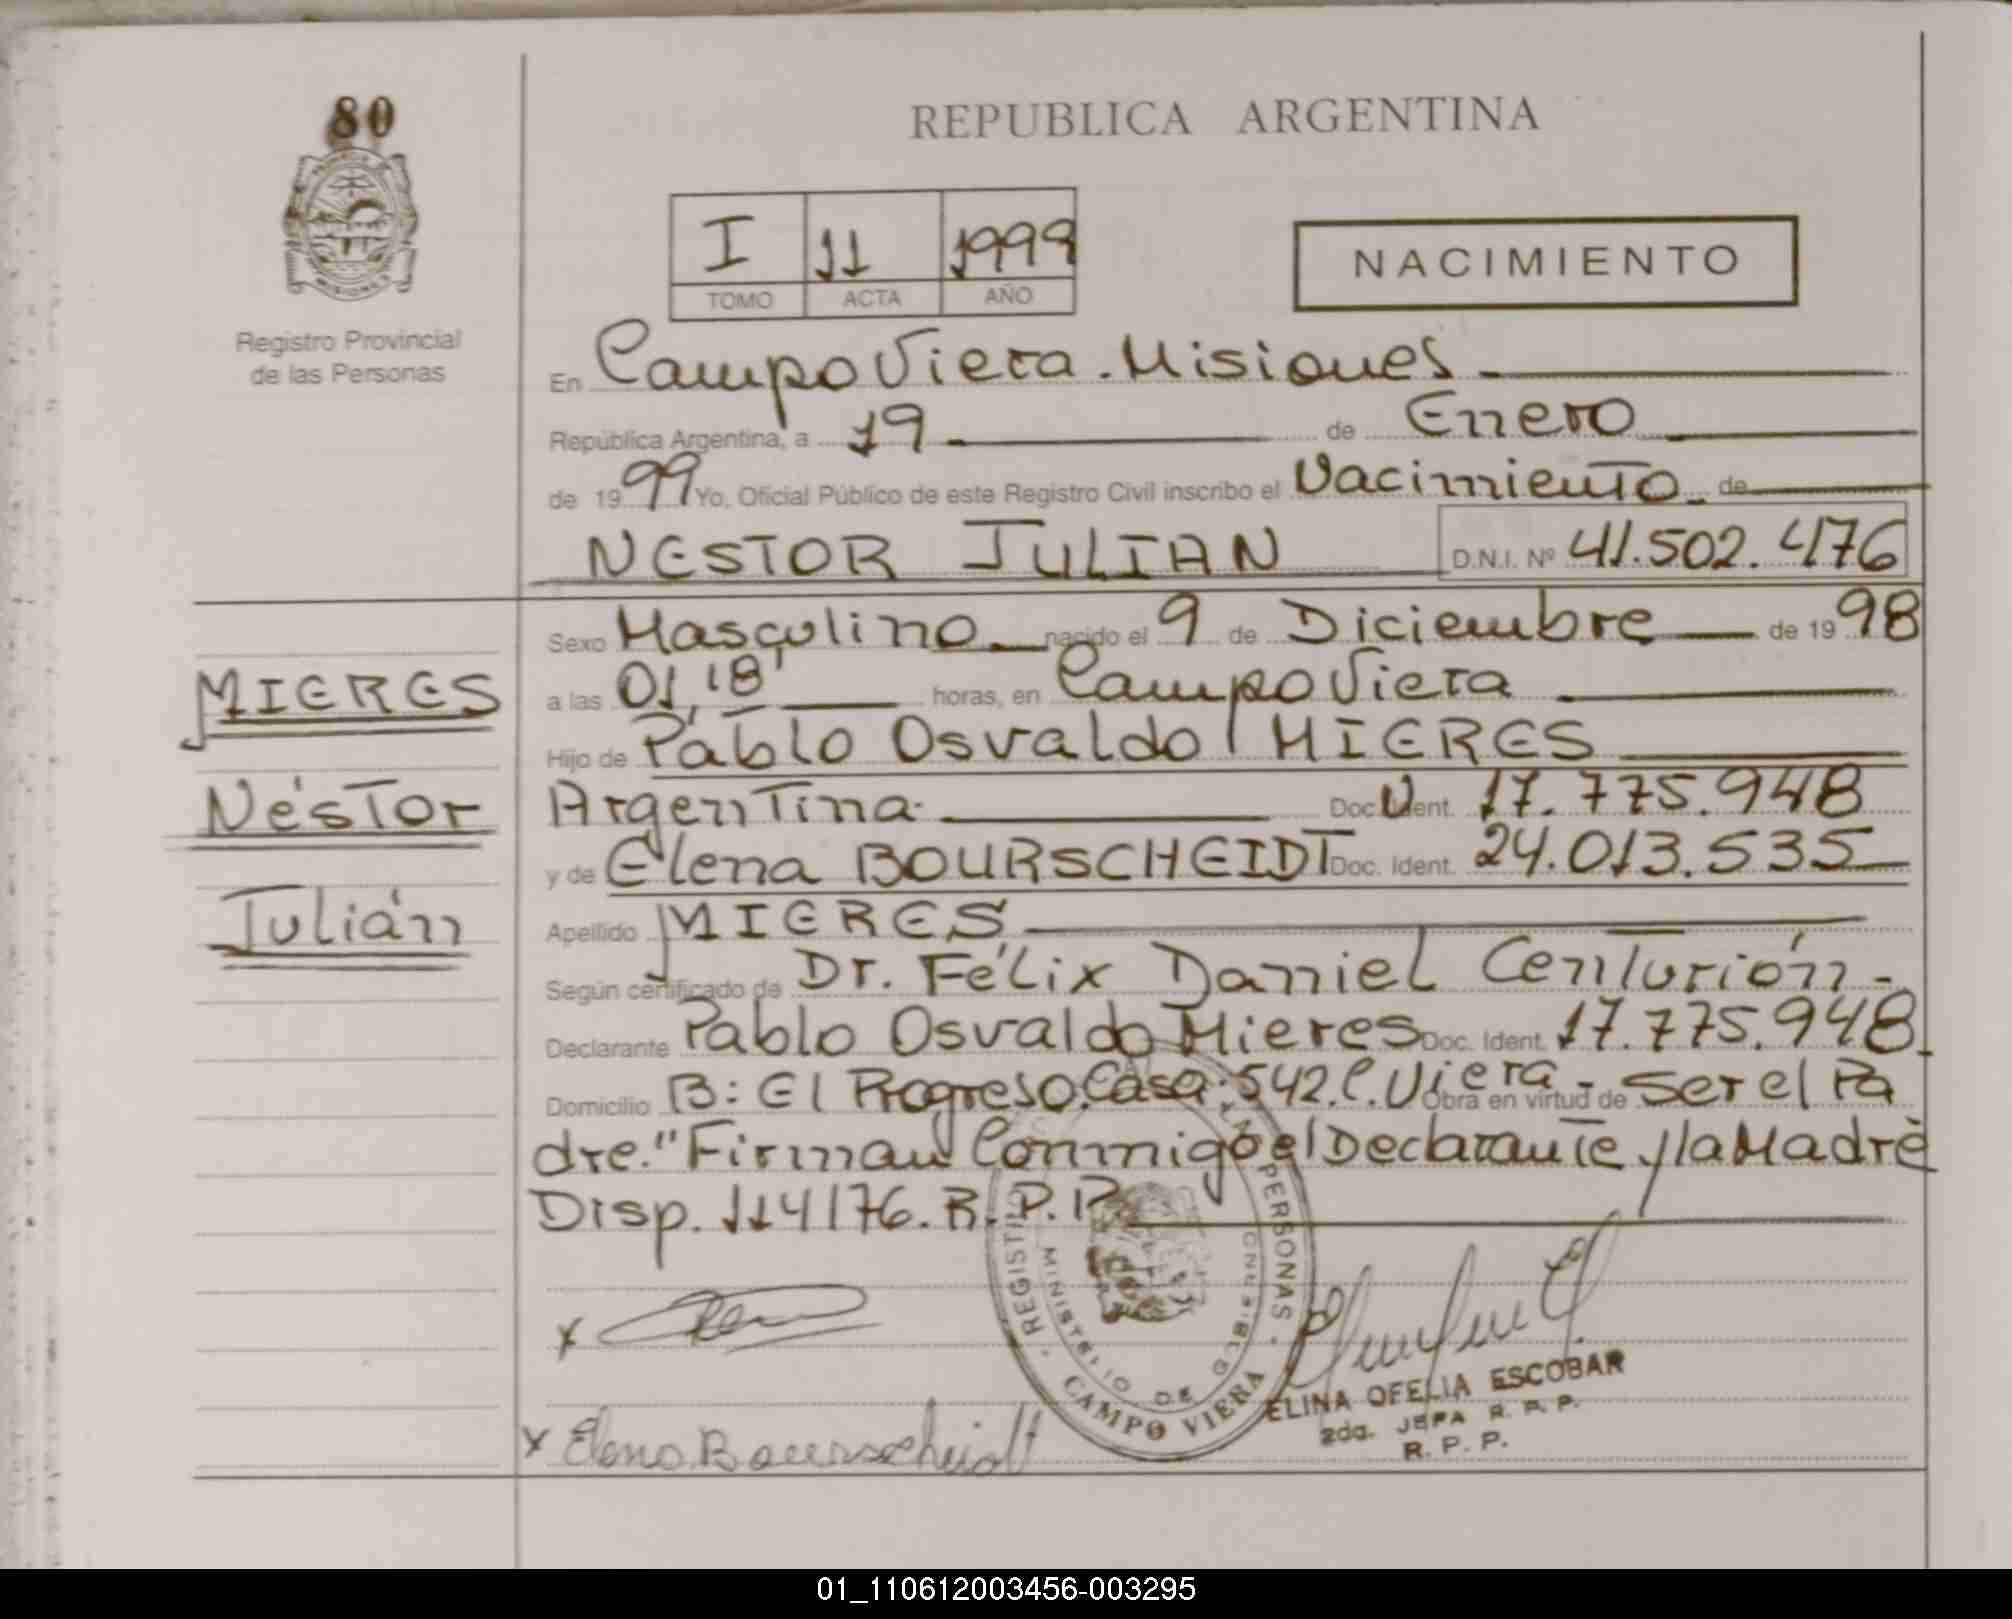 80
MISIONES
Registro Provincial
de las Personas
REPUBLICA ARGENTINA
I 11 1999
TOMO ACTA AÑO
NACIMIENTO
En Campo Viera. Misiones
República Argentina, a 19 de Enero
de 1999 Yo, Oficial Público de este Registro Civil inscribo el Nacimiento de
NESTOR JULIAN D.N.I. Nº 41.502.476
Sexo Masculino nacido el 9 de Diciembre de 1998
a las 01,18' horas, en Campo Viera
Hijo de Pablo Osvaldo MIERES
Argentina. Doc. Ident. 17.775.948
y de Elena BOURSCHEIDT Doc. Ident. 24.013.535
Apellido MIERES
Según certificado de Dr. Félix Daniel Centurión-
Declarante Pablo Osvaldo Mieres Doc. Ident. 17.775.948.
Domicilio B: El Progreso. Casa: 542. C. Viera - Obra en virtud de Ser el Pa
dre." Firman Conmigo el Declarante y la Madre
Disp. 114/76. R. P. P.
MIERES
Néstor
Julián
x
x Elena Bourscheidt
REGISTRO PERSONAS
MINISTERIO DE GOBIERNO
CAMPO VIERA
ELINA OFELIA ESCOBAR
2da. JEFA R. P. P.
R. P. P.
01_110612003456-003295